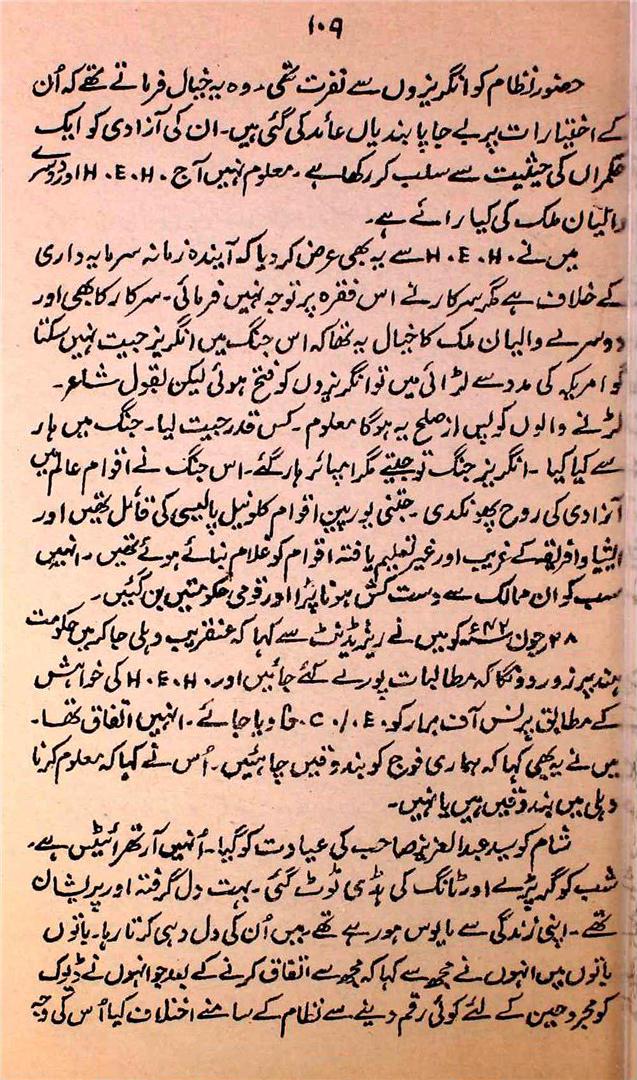 ۱۰۹
حضور نظام کو انگریزوں سے نفرت تھی۔ وہ یہ خیال فرماتے تھے کہ اُن
کے اختیارات پر بے جا پابندیاں عائد کی گئی ہیں۔ ان کی آزادی کو ایک
حکمراں کی حیثیت سے سلب کر رکھا ہے۔ معلوم نہیں آج H.E.H. اور دوسرے
والیان ملک کی کیا رائے ہے۔
میں نے H.E.H. سے یہ بھی عرض کر دیا کہ آیندہ زمانہ سرمایہ داری
کے خلاف ہے مگر سرکار نے اس فقرہ پر توجہ نہیں فرمائی۔ سرکار کا بھی اور
دوسرے والیان ملک کا خیال یہ تھا کہ اس جنگ میں انگریز جیت نہیں سکتا
گو امریکہ کی مدد سے لڑائی میں تو انگریزوں کو فتح ہوئی لیکن بقول شاعر۔
لڑنے والوں کو پس از صلح یہ ہوگا معلوم۔ کس قدر جیت لیا۔ جنگ میں ہار
سے کیا کیا۔ انگریز جنگ تو جیتے مگر امپائر ہار گئے۔ اس جنگ نے اقوام عالم میں
آزادی کی روح پھونکدی۔ جتنی یورپین اقوام کلونیل پالیسی کی قائل تھیں اور
ایشیا و افریقہ کے غریب اور غیر تعلیم یافتہ اقوام کو غلام بنائے ہوئے تھیں۔ انہیں
سب کو ان ممالک سے دست کش ہونا پڑا اور قومی حکومتیں بن گئیں۔
۲۸ جون ۴۲ء کو میں نے ریزیڈنٹ سے کہا کہ عنقریب دہلی جا کر میں حکومت
ہند پر زور دونگا کہ مطالبات پورے کئے جائیں اور H.E.H. کی خواہش
کے مطابق پرنس آف برار کو C.I.E. دیا جائے۔ انہیں اتفاق تھا۔
میں نے یہ بھی کہا کہ ہماری فوج کو بندوقیں چاہئیں۔ اُس نے کہا کہ معلوم کرنا
دہلی میں بندوقیں ہیں یا نہیں۔
شام کو سید عبدالعزیز صاحب کی عیادت کو گیا۔ اُنہیں آرتھرائٹیس ہے۔
شب کو گر پڑے اور ٹانگ کی ہڈی ٹوٹ گئی۔ بہت دل گرفتہ اور پریشان
تھے۔ اپنی زندگی سے مایوس ہو رہے تھے۔ میں اُن کی دل دہی کرتا رہا۔ باتوں
باتوں میں انہوں نے مجھ سے کہا کہ مجھ سے اتفاق کرنے کے بعد جو انہوں نے ڈیوک
کو مجروحین کے لئے کوئی رقم دینے سے نظام کے سامنے اختلاف کیا اُس کی وجہ